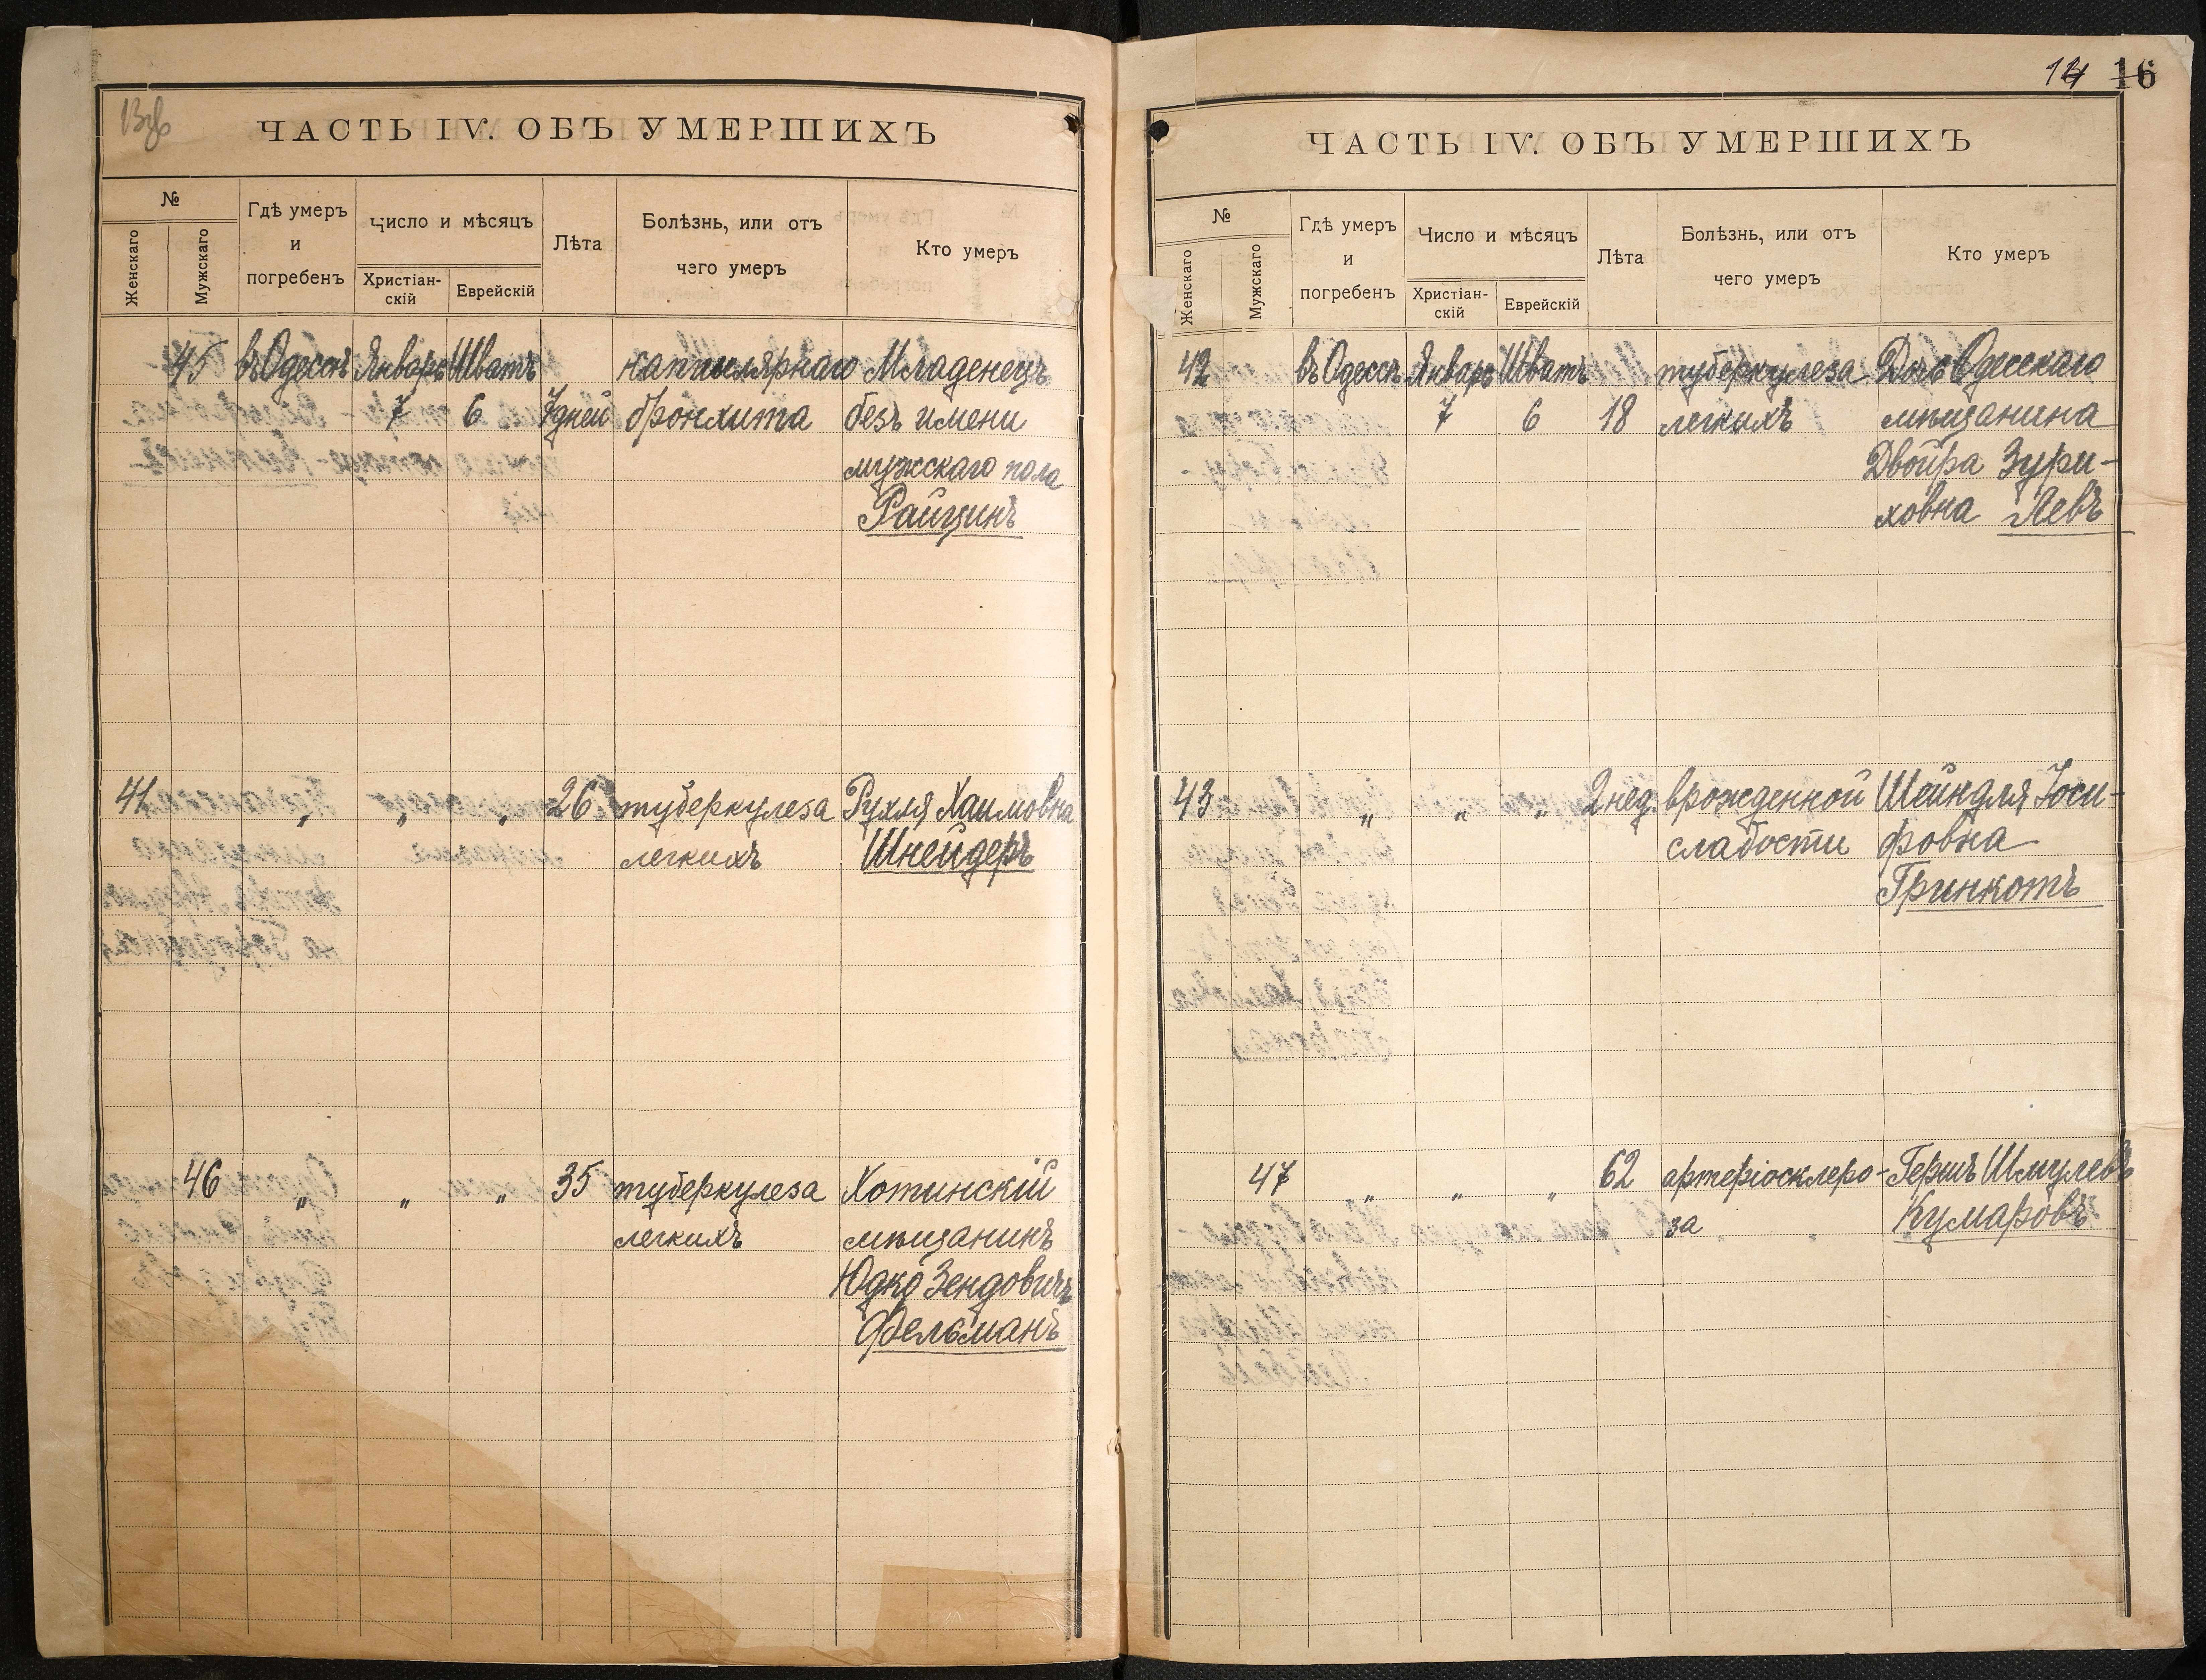 ЧАСТЬ IV. ОБЪ УМЕРШИХЪ
№
Женскаго
Мужскаго
Гдѣ умеръ
и
погребенъ
Число и мѣсяцъ
Христіан-
скій
Еврейскій
Лѣта
Болѣзнь, или отъ
чего умеръ
Кто умеръ
45 въ Одессѣ Январь Шватъ капилярнаго Младенецъ
7 6 7 дней бронхита безъ имени
мужскаго пола
Райцинъ
41 „ „ „ 26 туберкулеза Рухля Хаимовна
легкихъ Шнейдеръ
46 „ „ „ 35 туберкулеза Хотинскій
легкихъ мѣщанинъ
Юдко Зендовичъ
Фельманъ
14 16
ЧАСТЬ IV. ОБЪ УМЕРШИХЪ
№
Женскаго
Мужскаго
Гдѣ умеръ
и
погребенъ
Число и мѣсяцъ
Христіан-
скій
Еврейскій
Лѣта
Болѣзнь, или отъ
чего умеръ
Кто умеръ
42 въ Одессѣ Январь Шватъ туберкулеза Дочь Одесскаго
7 6 18 легкихъ мѣщанина
Двойра Зури-
ховна Левъ
43 „ „ „ 2 нед. врожденной Шейндля Іоси-
слабости фовна
Гринкотъ
47 „ „ „ 62 артеріосклеро- Гершъ Шмулевъ
за Кумаровъ